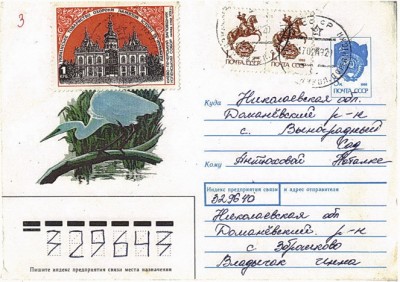 3
1
ПОЧТА СССР
ПОЧТА СССР
ПОЧТА СССР
Куда Николаевская обл.
Доманёвский р-н
с. Виноградный
Сад
Кому
Наталке
Индекс предприятия связи и адрес отправителя
329640
Николаевская обл
Доманёвский. р-н
с
Владычак Инна
329643
Пишите индекс предприятия связи места назначения